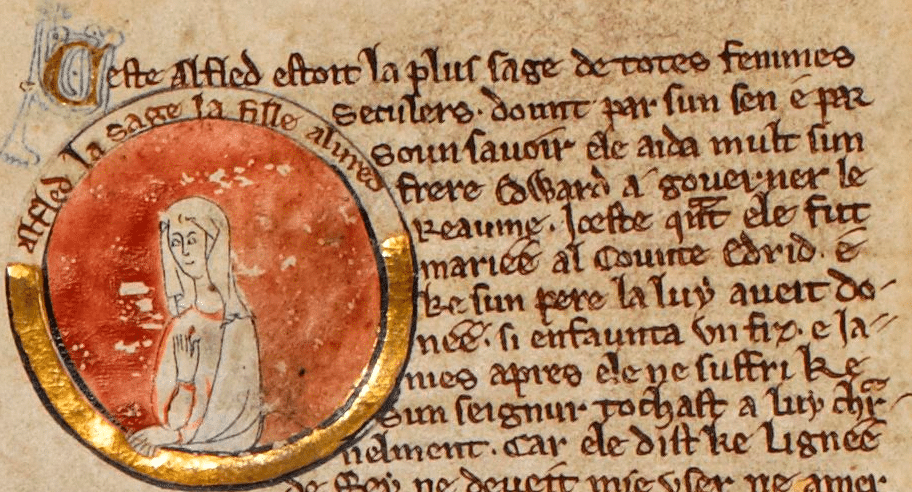 Ceste Alfled estoit la plus sage de totes femmes
alfled la sage la fille alured
seculers· dount par sun sen e par
soun sauoir ele aida mult sun
frere Edward a gouerner le
reaume· Iceste qnt ele fut
mariee al Counte Edrid· e
ke sun pere la luy aueit do-
nee· si enfaunta vn fiz· e ja-
mes apres ele ne suffri ke
sun seignur tochast a luy chr-
nelment· Car ele dist ke lignee
de Rey ne deueit mie vser ne amer